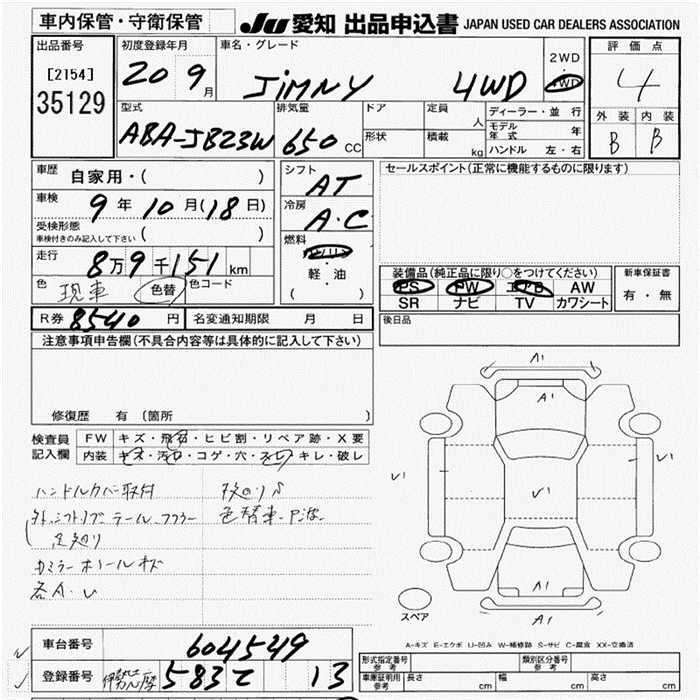 車内保管・守衛保管
JU 愛知 出品申込書 JAPAN USED CAR DEALERS ASSOCIATION
出品番号
[2154]
35129
初度登録年月
20 9月
車名・グレード
JIMNY 4WD
2WD
4WD
評価点
4
外装 内装
B B
型式
ABA-JB23W
排気量
650 CC
ドア
定員
人
形状
積載
kg
ディーラー・並行
モデル年式 年
ハンドル 左・右
車歴
自家用・( )
車検
9年 10月(18日)
受検形態
車検付きのみ記入して下さい ( )
走行
8万9千151km
色
現車
色替
色コード
シフト
AT
冷房
A.C
燃料
ガソリン
軽・油
( )
セールスポイント(正常に機能するものに限ります)
装備品(純正品に限り○をつけてください)
PS PW エアB AW
SR ナビ TV カワシート
新車保証書
有・無
R券 8540円
名変通知期限 月 日
後日品
注意事項申告欄(不具合内容等は具体的に記入して下さい)
修復歴 有 (箇所 )
検査員記入欄
FW キズ・飛石・ヒビ割・リペア跡・X要
内装 キズ・汚レ・コゲ・穴・スレ・キレ・破レ
ハンドルカバー取付
色替車
各A・U
A1
A1
A1
A1
スペア
A-キズ E-エクボ U-凹み W-補修跡 S-サビ C-腐食 XX-交換済
車台番号
604549
登録番号
583 て 13
形式指定番号
参考
類別区分番号
参考
車庫証明用
参考
長さ cm
幅 cm
高さ cm